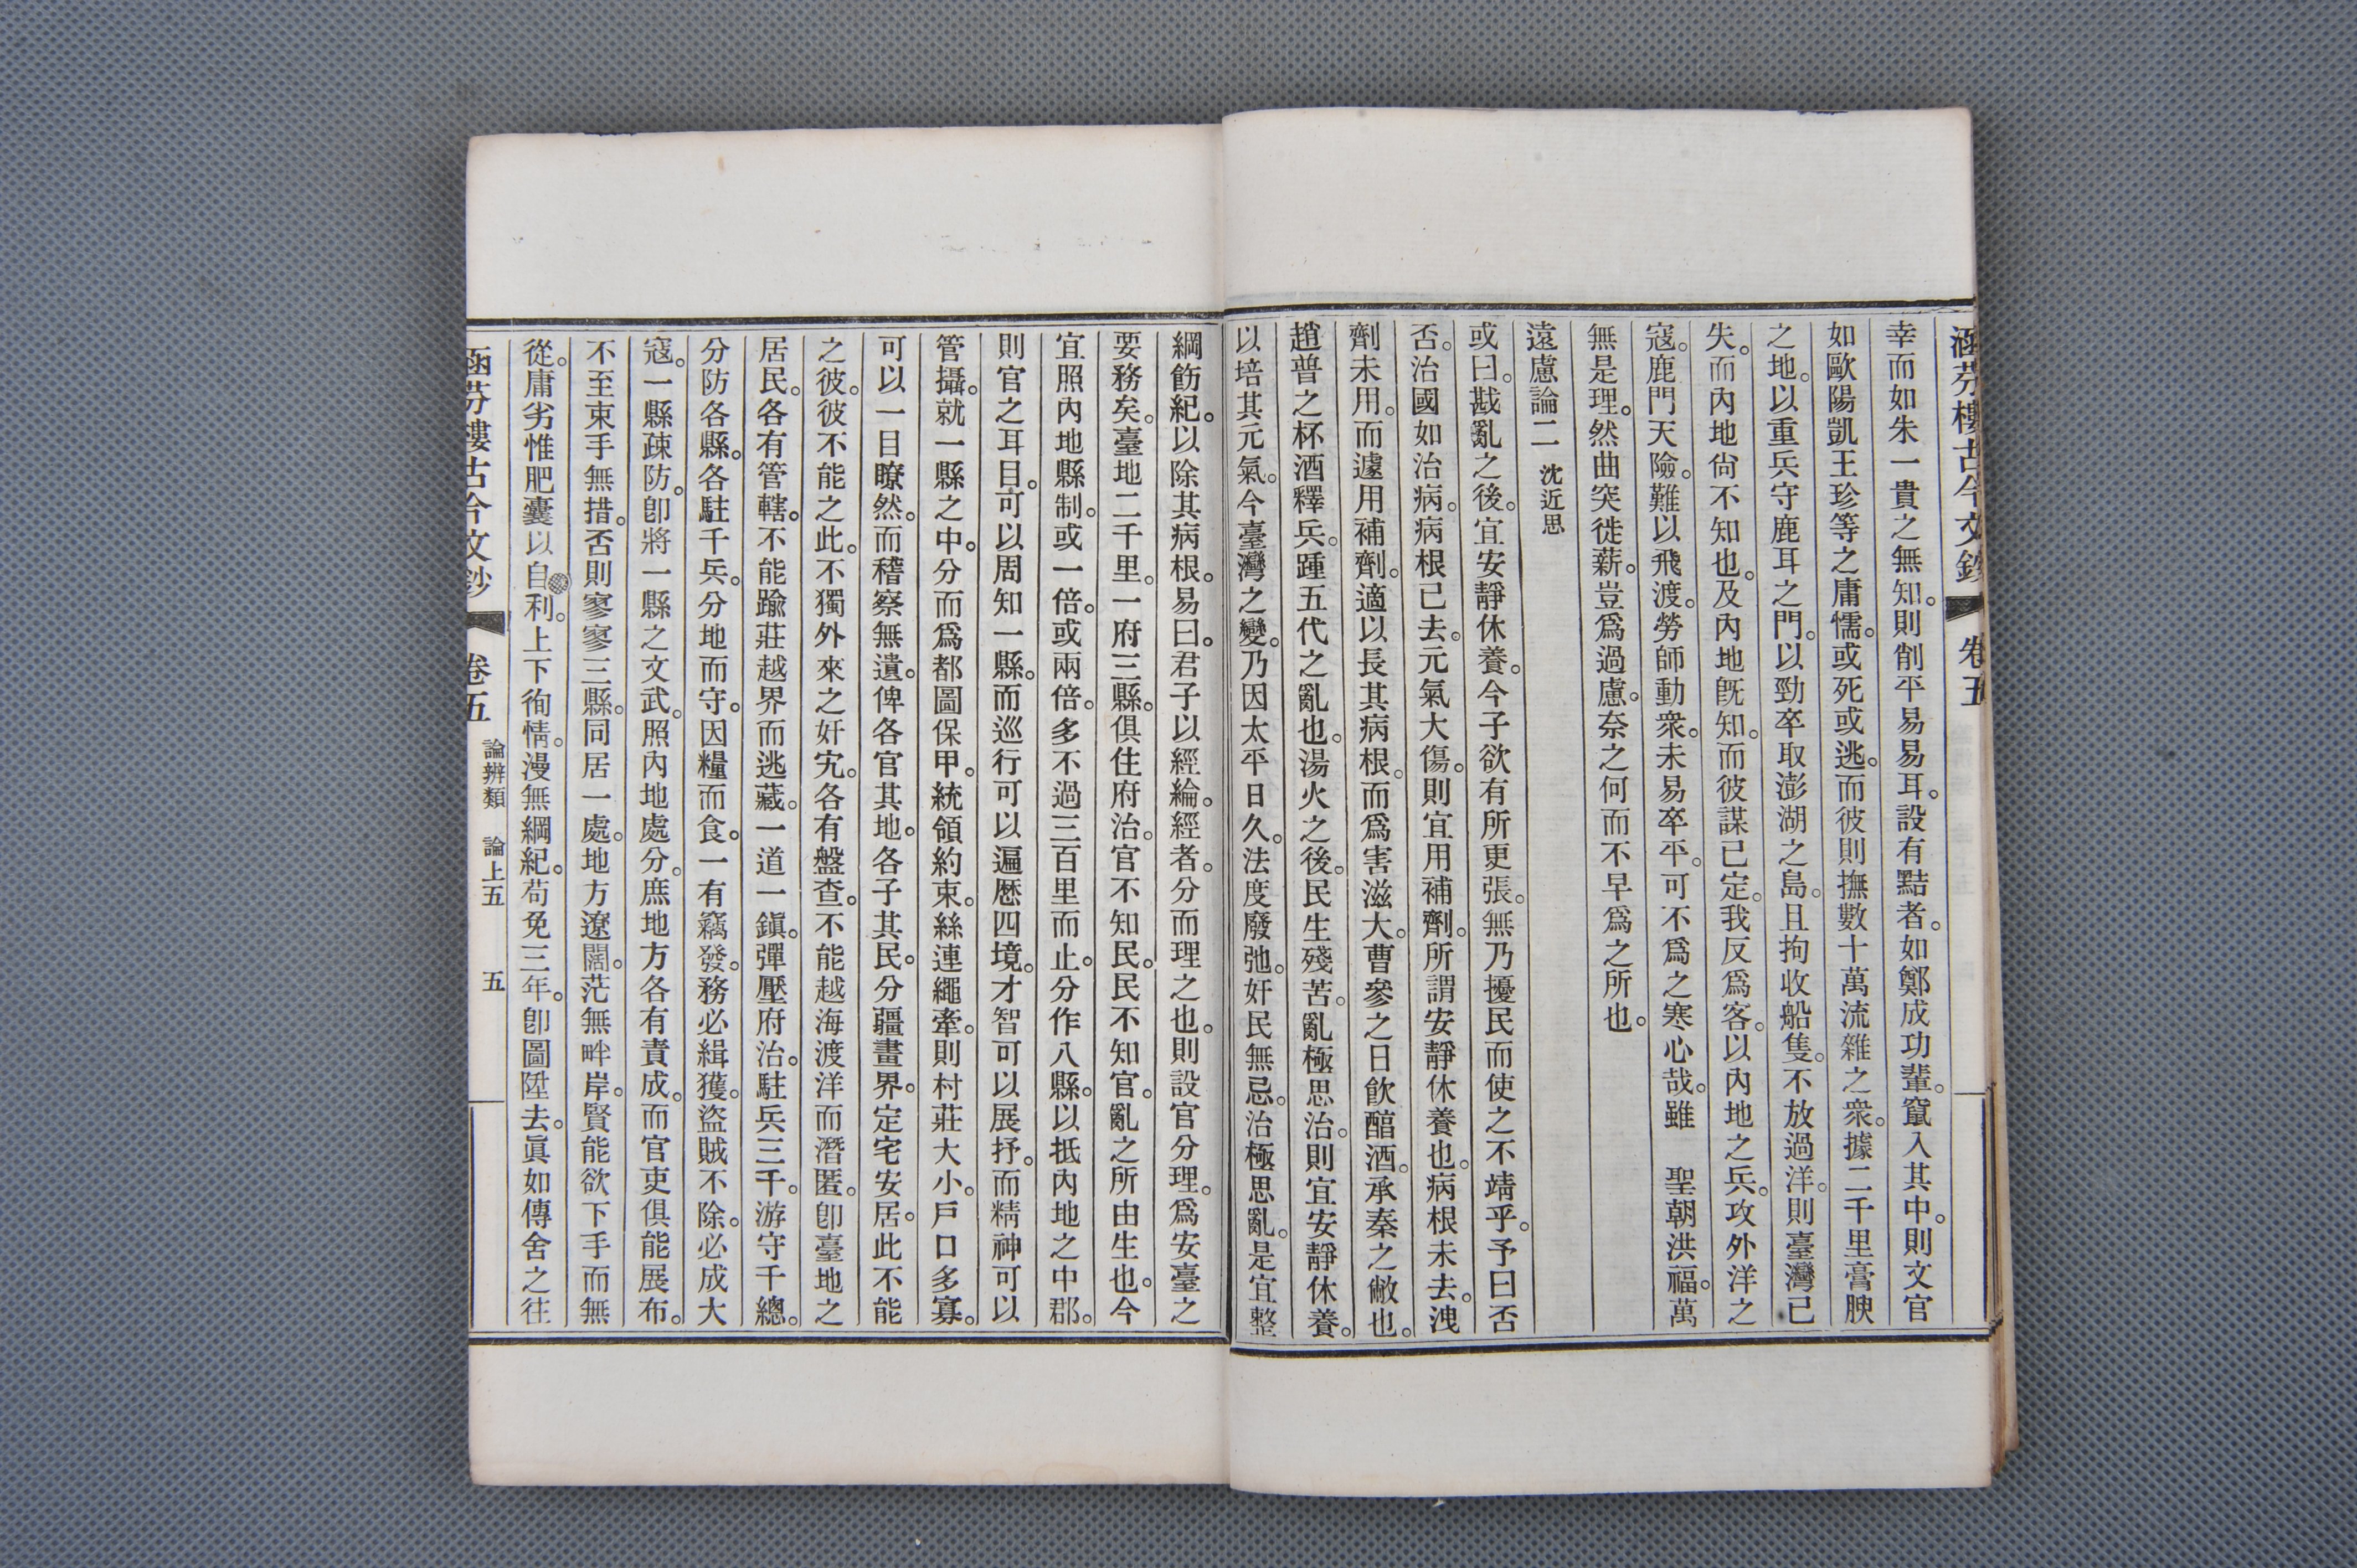 涵芬樓古今文鈔 卷五
幸而如朱一貴之無知。則削平易易耳。設有黠者。如鄭成功輩。竄入其中。則文官
如歐陽凱王珍等之庸懦。或死或逃。而彼則撫數十萬流雜之衆。據二千里膏腴
之地。以重兵守鹿耳之門。以勁卒取澎湖之島。且拘收船隻。不放過洋。則臺灣已
失。而內地尙不知也。及內地旣知。而彼謀已定。我反爲客。以內地之兵。攻外洋之
寇。鹿門天險。難以飛渡。勞師動衆。未易卒平。可不爲之寒心哉。雖　聖朝洪福。萬
無是理。然曲突徙薪。豈爲過慮。奈之何而不早爲之所也。
遠慮論二　沈近思
或曰。戡亂之後。宜安靜休養。今子欲有所更張。無乃擾民而使之不靖乎。予曰否
否。治國如治病。病根已去。元氣大傷。則宜用補劑。所謂安靜休養也。病根未去。洩
劑未用。而遽用補劑。適以長其病根。而爲害滋大。曹參之日飮醕酒。承秦之敝也。
趙普之杯酒釋兵。踵五代之亂也。湯火之後。民生殘苦。亂極思治。則宜安靜休養。
以培其元氣。今臺灣之變。乃因太平日久。法度廢弛。奸民無忌。治極思亂。是宜整
綱飭紀。以除其病根。易曰。君子以經綸。經者。分而理之也。則設官分理。爲安臺之
要務矣。臺地二千里。一府三縣。俱住府治。官不知民。民不知官。亂之所由生也。今
宜照內地縣制。或一倍。或兩倍。多不過三百里而止。分作八縣。以抵內地之中郡。
則官之耳目。可以周知一縣。而巡行可以遍歷四境。才智可以展抒。而精神可以
管攝。就一縣之中。分而爲都圖保甲。統領約束。絲連繩牽。則村莊大小。戶口多寡。
可以一目瞭然。而稽察無遺。俾各官其地。各子其民。分疆畫界。定宅安居。此不能
之彼。彼不能之此。不獨外來之奸宄。各有盤查。不能越海渡洋而潛匿。卽臺地之
居民。各有管轄。不能踰莊越界而逃藏。一道一鎭。彈壓府治。駐兵三千。游守千總。
分防各縣。各駐千兵。分地而守。因糧而食。一有竊發。務必緝獲。盜賊不除。必成大
寇。一縣疎防。卽將一縣之文武。照內地處分。庶地方各有責成。而官吏俱能展布。
不至束手無措。否則寥寥三縣。同居一處。地方遼闊。茫無畔岸。賢能欲下手而無
從。庸劣惟肥囊以自利。上下徇情。漫無綱紀。苟免三年。卽圖陞去。眞如傳舍之往
涵芬樓古今文鈔 卷五 論辨類 論上五 五